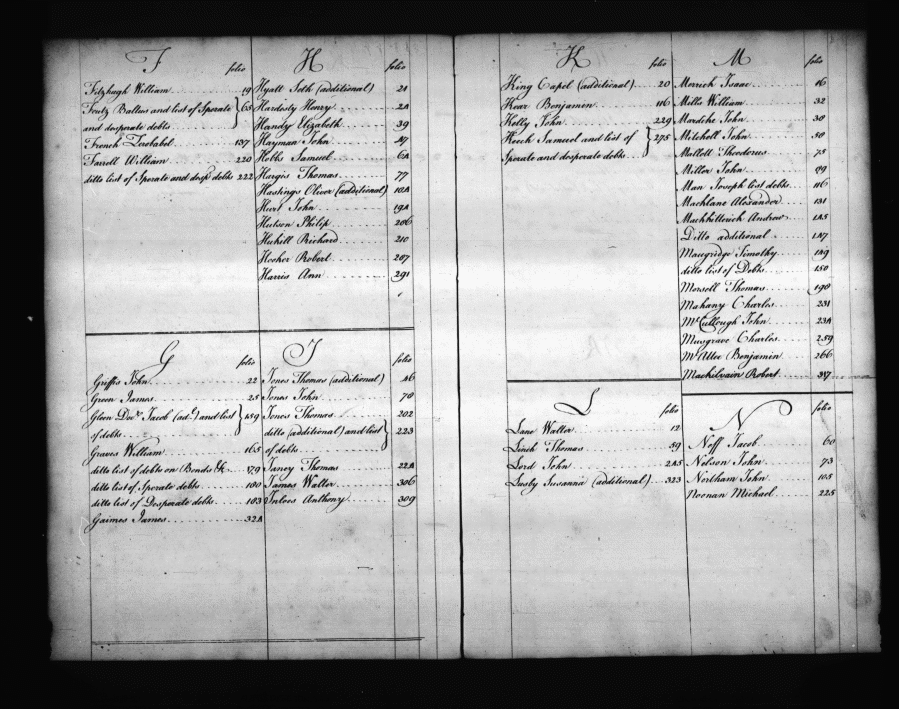 F
folio
Fitzhugh William 19
Foutz Baltus and list of Sperate } 65
and desperate debts
French Zerobabel 137
Farrell William 220
ditto list of Sperate and desp.t debts 222
H
folio
Hyatt Seth (additional) 21
Hardisty Henry 24
Handy Elizabeth 39
Hayman John 47
Hobbs Samuel 64
Hargis Thomas 77
Hastings Oliver (additional) 104
Hurt John 194
Hutson Philip 206
Huhill Richard 210
Hooker Robert 287
Harris Ann 291
G
folio
Griffis John 22
Green James 25
Gleen Doc.r Jacob (ad.l) and list } 159
of debts
Graves William 165
ditto list of debts on Bonds &c 179
ditto list of Sperate debts 180
ditto list of Desperate debts 183
Gaimes James 324
J
folio
Jones Thomas (additional) 46
Jones John 70
Jones Thomas 202
ditto (additional) and list } 223
of debts
Jancy Thomas 224
James Walter 306
Inloes Anthony 309
K
folio
King Capel (additional) 20
Kear Benjamin 116
Kelly John 229
Keech Samuel and list of } 275
Sperate and desperate debts
M
folio
Merrich Isaac 16
Mills William 32
Mardike John 38
Mitchell John 50
Mallott Theodorus 75
Miller John 99
Man Joseph list debts 116
Machlane Alexander 131
Machhitterich Andrew 145
Ditto additional 147
Maugridge Timothy 149
ditto list of Debts 150
Morsell Thomas 190
Mahany Charles 231
McCullough John 234
Musgrave Charles 259
McAtee Benjamin 266
Machilvain Robert 317
L
folio
Lane Walter 12
Linch Thomas 59
Lord John 245
Lusby Susanna (additional) 323
N
folio
Neff Jacob 60
Nelson John 73
Northam John 105
Noonan Michael 225